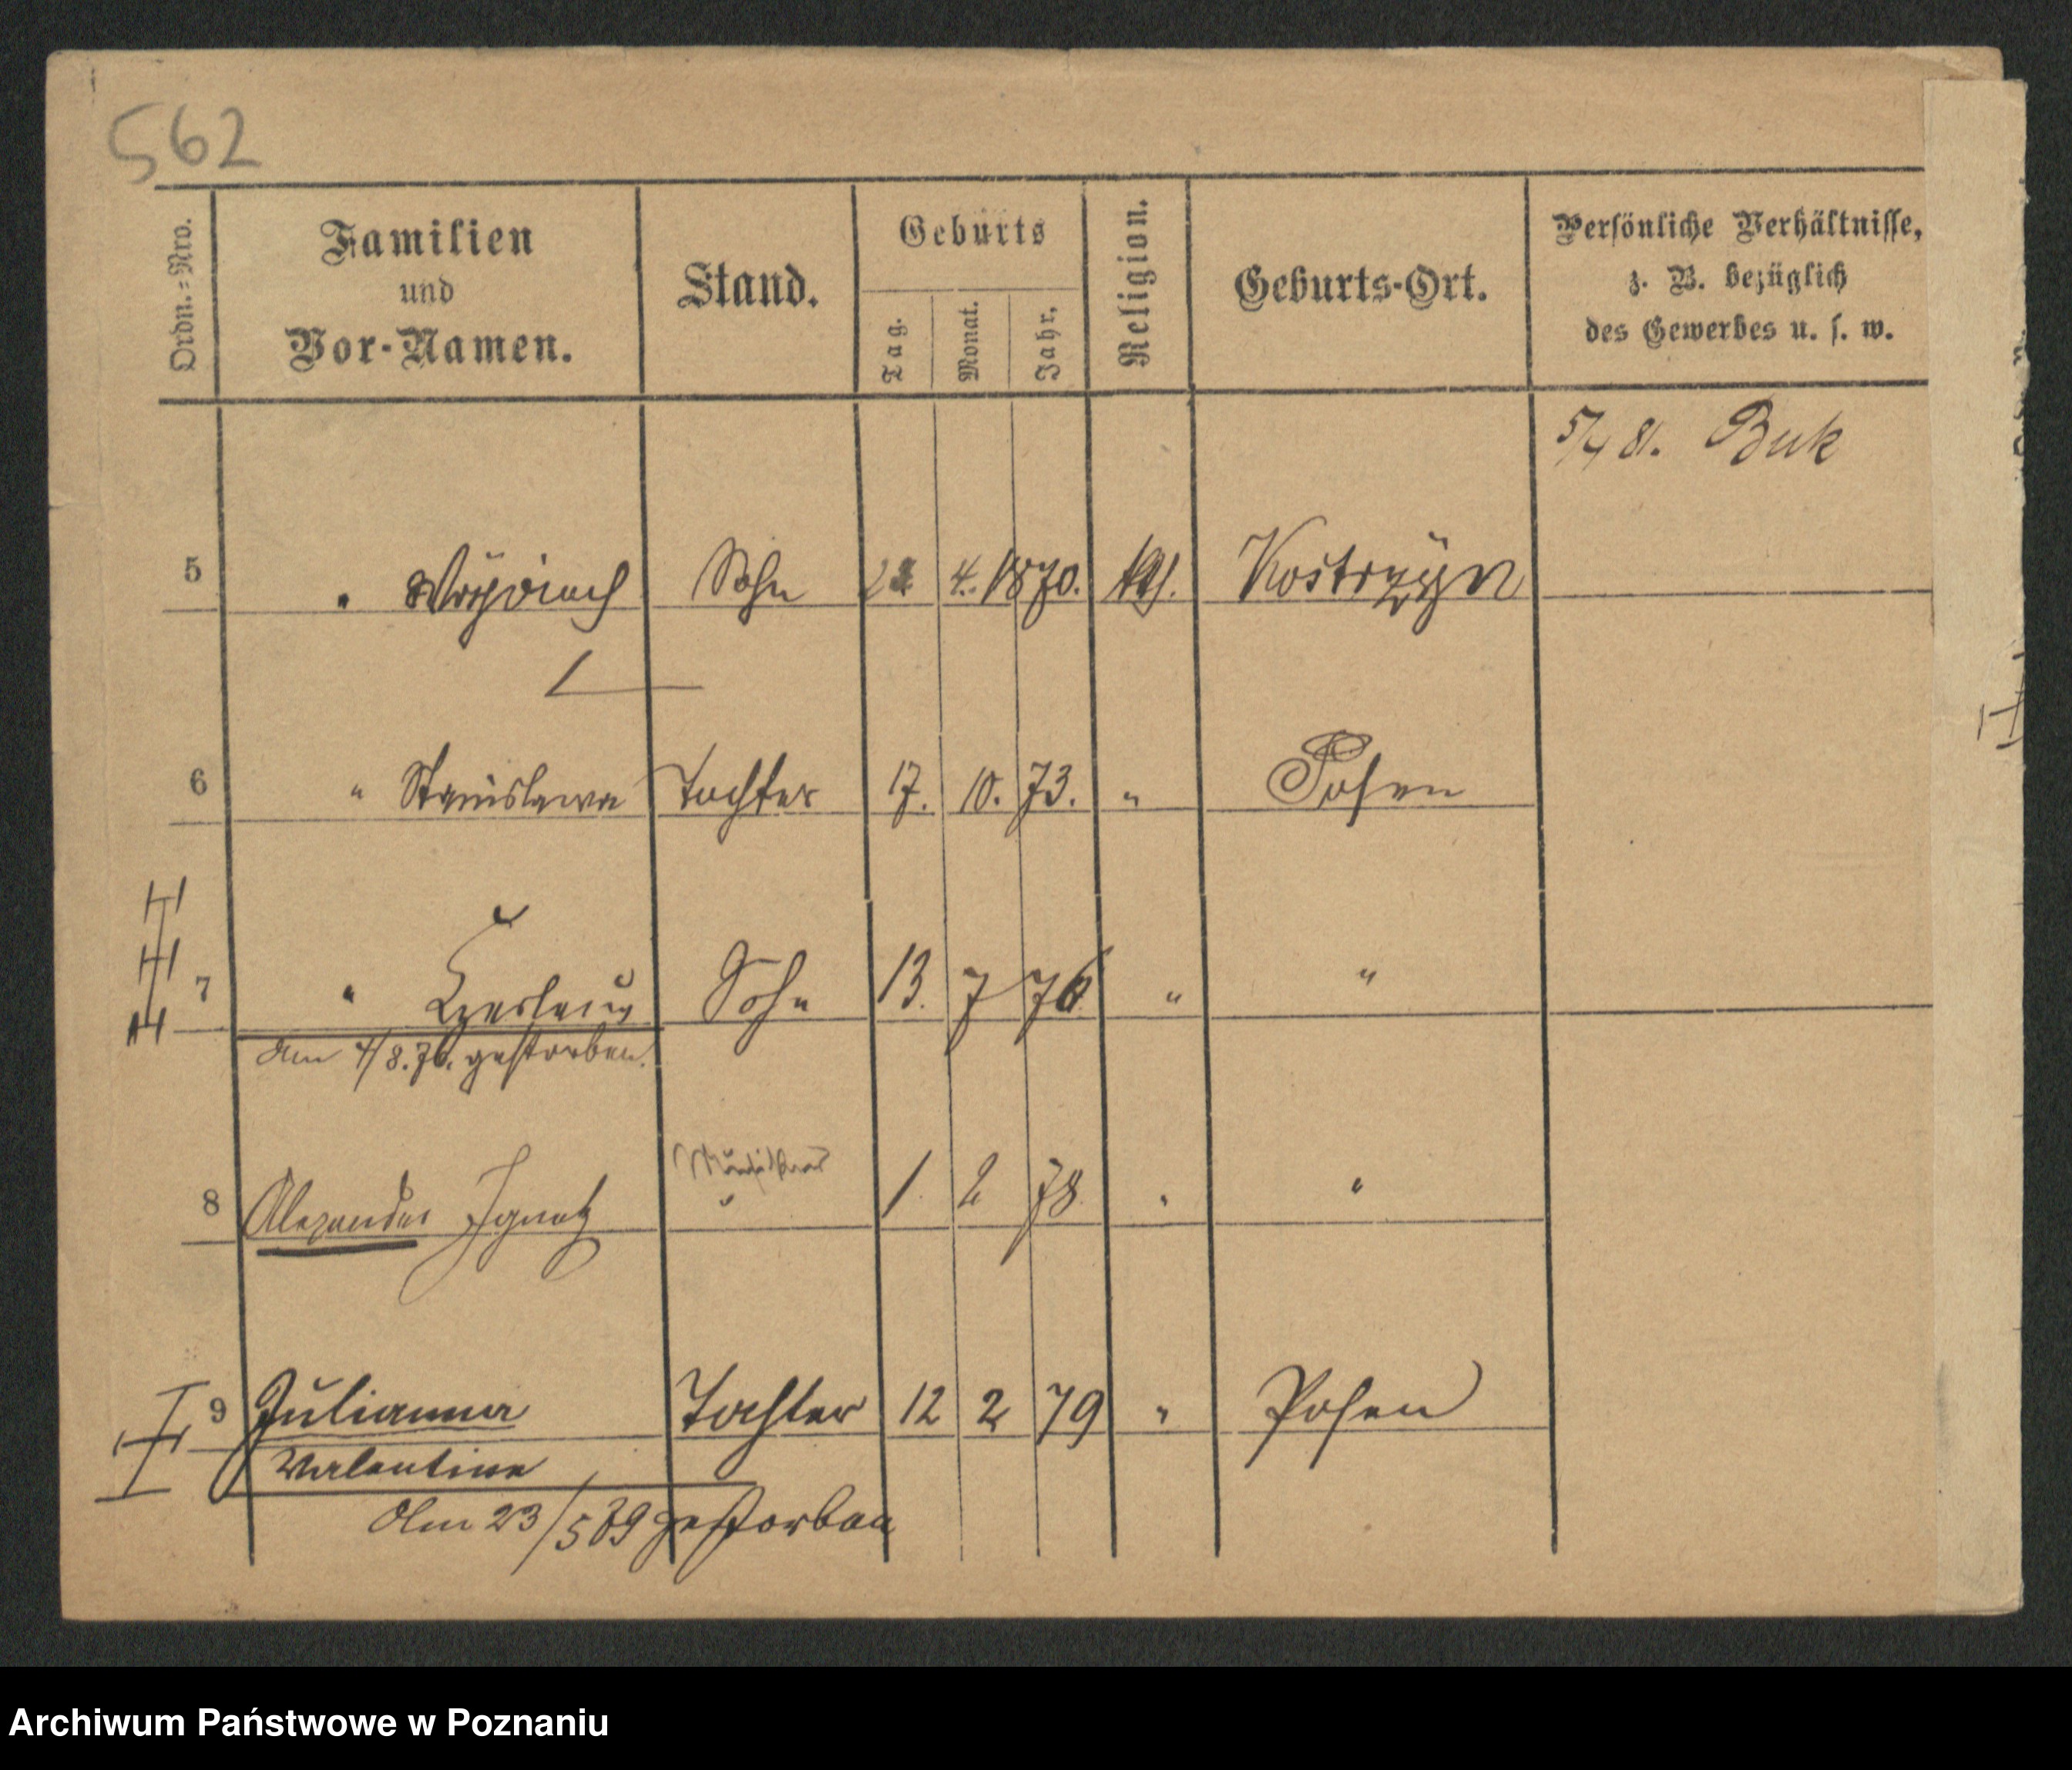 562
Ordn.-Nro. Familien und Vor-Namen. Stand. Geburts Tag. Monat. Jahr. Religion. Geburts-Ort. Persönliche Verhältnisse, z. B. bezüglich des Gewerbes u. s. w.
5/4 81. Buk
5 " Sohn 4. 1870. kath. Kostrzyn
6 " Stanislawa Tochter 17. 10. 73. " Posen
7 " Czeslaus Sohn 13. 7 76 " "
Am 4/8.76. gestorben.
Musiker
8 Alexander Ignatz " 1 2 78 " "
9 Julianna Tochter 12 2 79 " Posen
Valentine
Am 23/5 89 gestorben
Archiwum Państwowe w Poznaniu